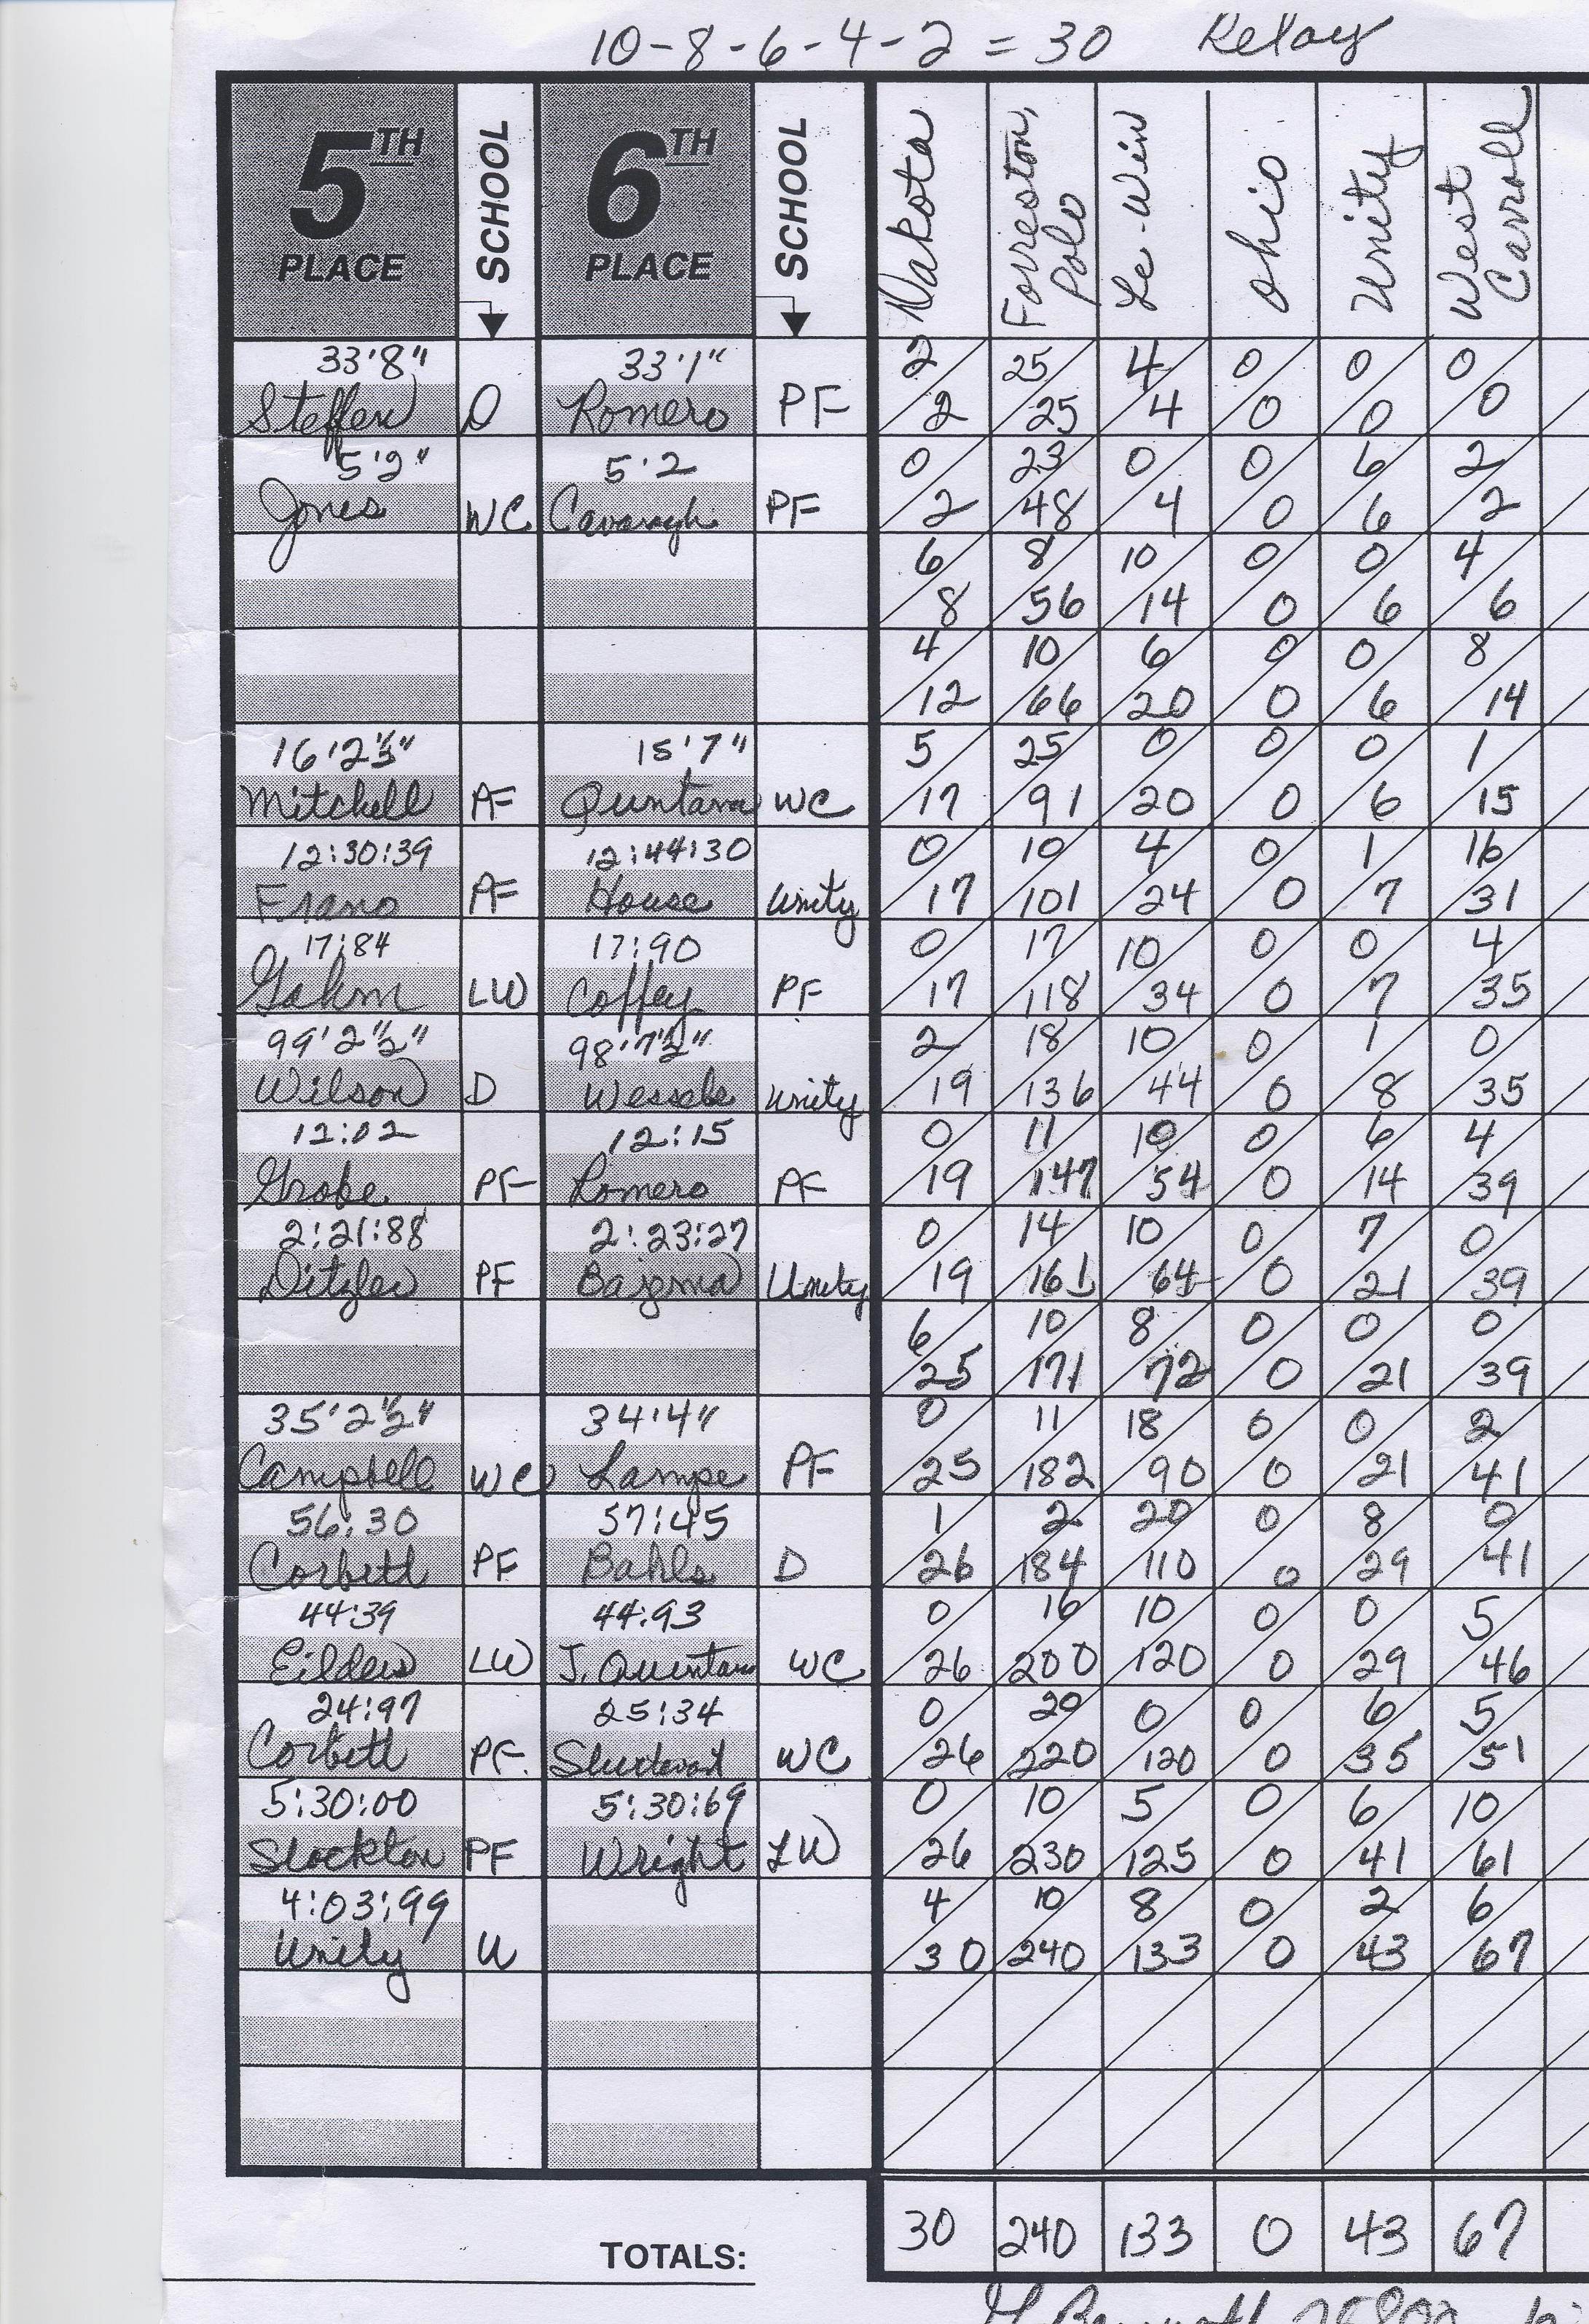 10-8-6-4-2 = 30 Relay
5TH PLACE SCHOOL 6TH PLACE SCHOOL Dakota Forreston, Polo Le-Win Ohio Unity West Carroll
33'8" 33'1" 2 25 4 0 0 0
Steffen D Romero PF 2 25 4 0 0 0
5'2" 5'2 0 23 0 0 6 2
Jones WC Cavanagh PF 2 48 4 0 6 2
6 8 10 0 0 4
8 56 14 0 6 6
4 10 6 0 0 8
12 66 20 0 6 14
15'7" 5 25 0 0 0 1
Mitchell AF Quintana WC 17 91 20 0 6 15
12:30:39 12:44:30 0 10 4 0 1 16
Frano AF House Unity 17 101 24 0 7 31
17:84 17:90 0 17 10 0 0 4
Gahm LW Coffey PF 17 118 34 0 7 35
99'2½" 98'7½" 2 18 10 0 1 0
Wilson D Wessels Unity 19 136 44 0 8 35
12:02 12:15 0 11 10 0 6 4
Grobe PF Romero PF 19 147 54 0 14 39
2:21:88 2:23:27 0 14 10 0 7 0
Ditzler PF Bajema Unity 19 161 64 0 21 39
6 10 8 0 0 0
25 171 72 0 21 39
35'2½" 34'4" 0 11 18 0 0 2
Campbell WC Lampe PF 25 182 90 0 21 41
56:30 57:45 1 2 20 0 8 0
Corbett PF Bahls D 26 184 110 0 29 41
44:39 44:93 0 16 10 0 0 5
Eilders LW J. Quintana WC 26 200 120 0 29 46
24:97 25:34 0 20 0 0 6 5
Corbett PF. WC 26 220 120 0 35 51
5:30:00 5:30:69 0 10 5 0 6 10
Stockton PF Wright LW 26 230 125 0 41 61
4:03:99 4 10 8 0 2 6
Unity U 30 240 133 0 43 67
TOTALS: 30 240 133 0 43 67